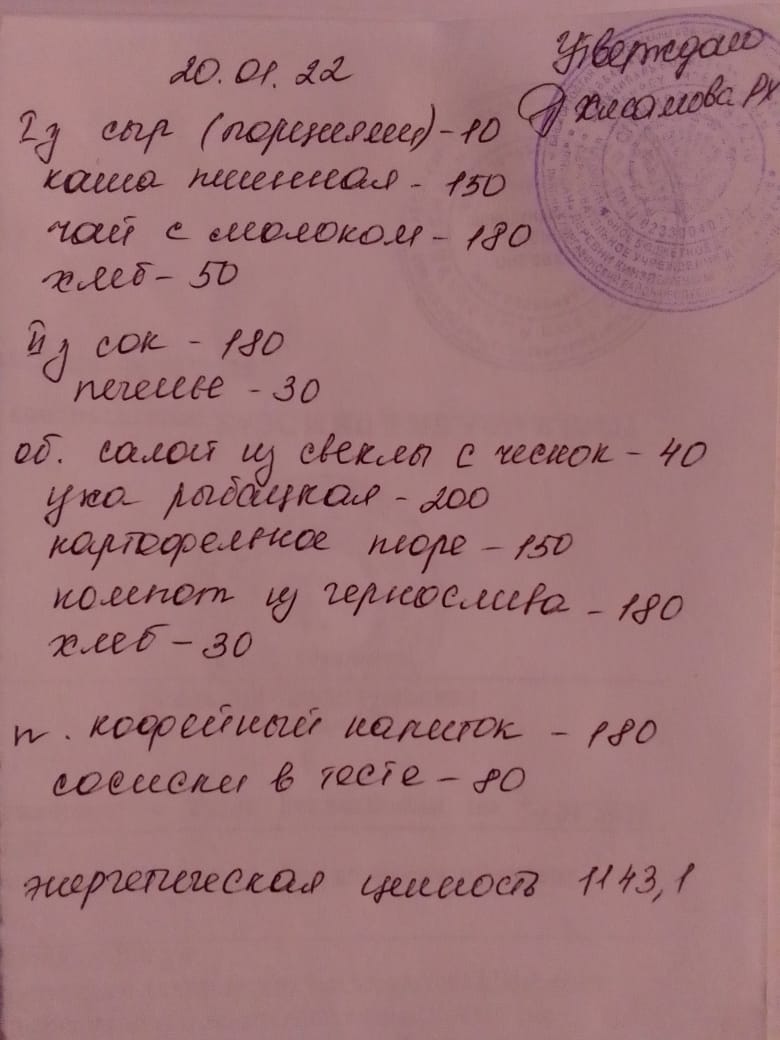 Утверждаю
20.01.22
Хисамова РХ
I з сыр (порциями) - 10
каша пшенная - 150
чай с молоком - 180
хлеб - 50
II з сок - 180
печенье - 30
об. салат из свеклы с чеснок - 40
уха рыбацкая - 200
картофельное пюре - 150
компот из чернослива - 180
хлеб - 30
п. кофейный напиток - 180
сосиски в тесте - 80
энергетическая ценность 1143,1